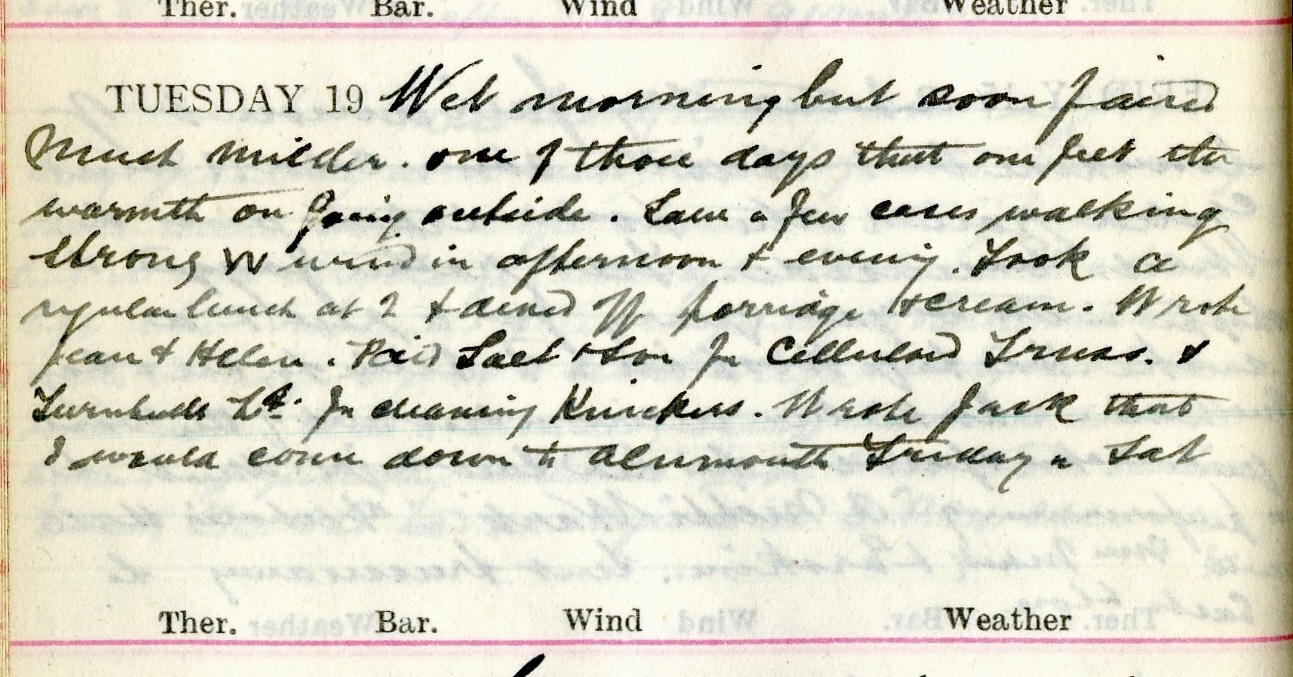 Ther. Bar. Wind Weather
TUESDAY 19 Wet morning but soon faired
Much milder. one of those days that one feels the
warmth on going outside. Saw a few cases walking
strong W wind in afternoon & evening. Took a
regular lunch at 2 & dined off porridge & cream. Wrote
Jean & Helen. Paid Salt & Son for Celluloid Truss. &
Turnbulls Ld. for cleaning Knickers. Wrote Jack that
I would come down to Alnmouth Friday or Sat
Ther. Bar. Wind Weather